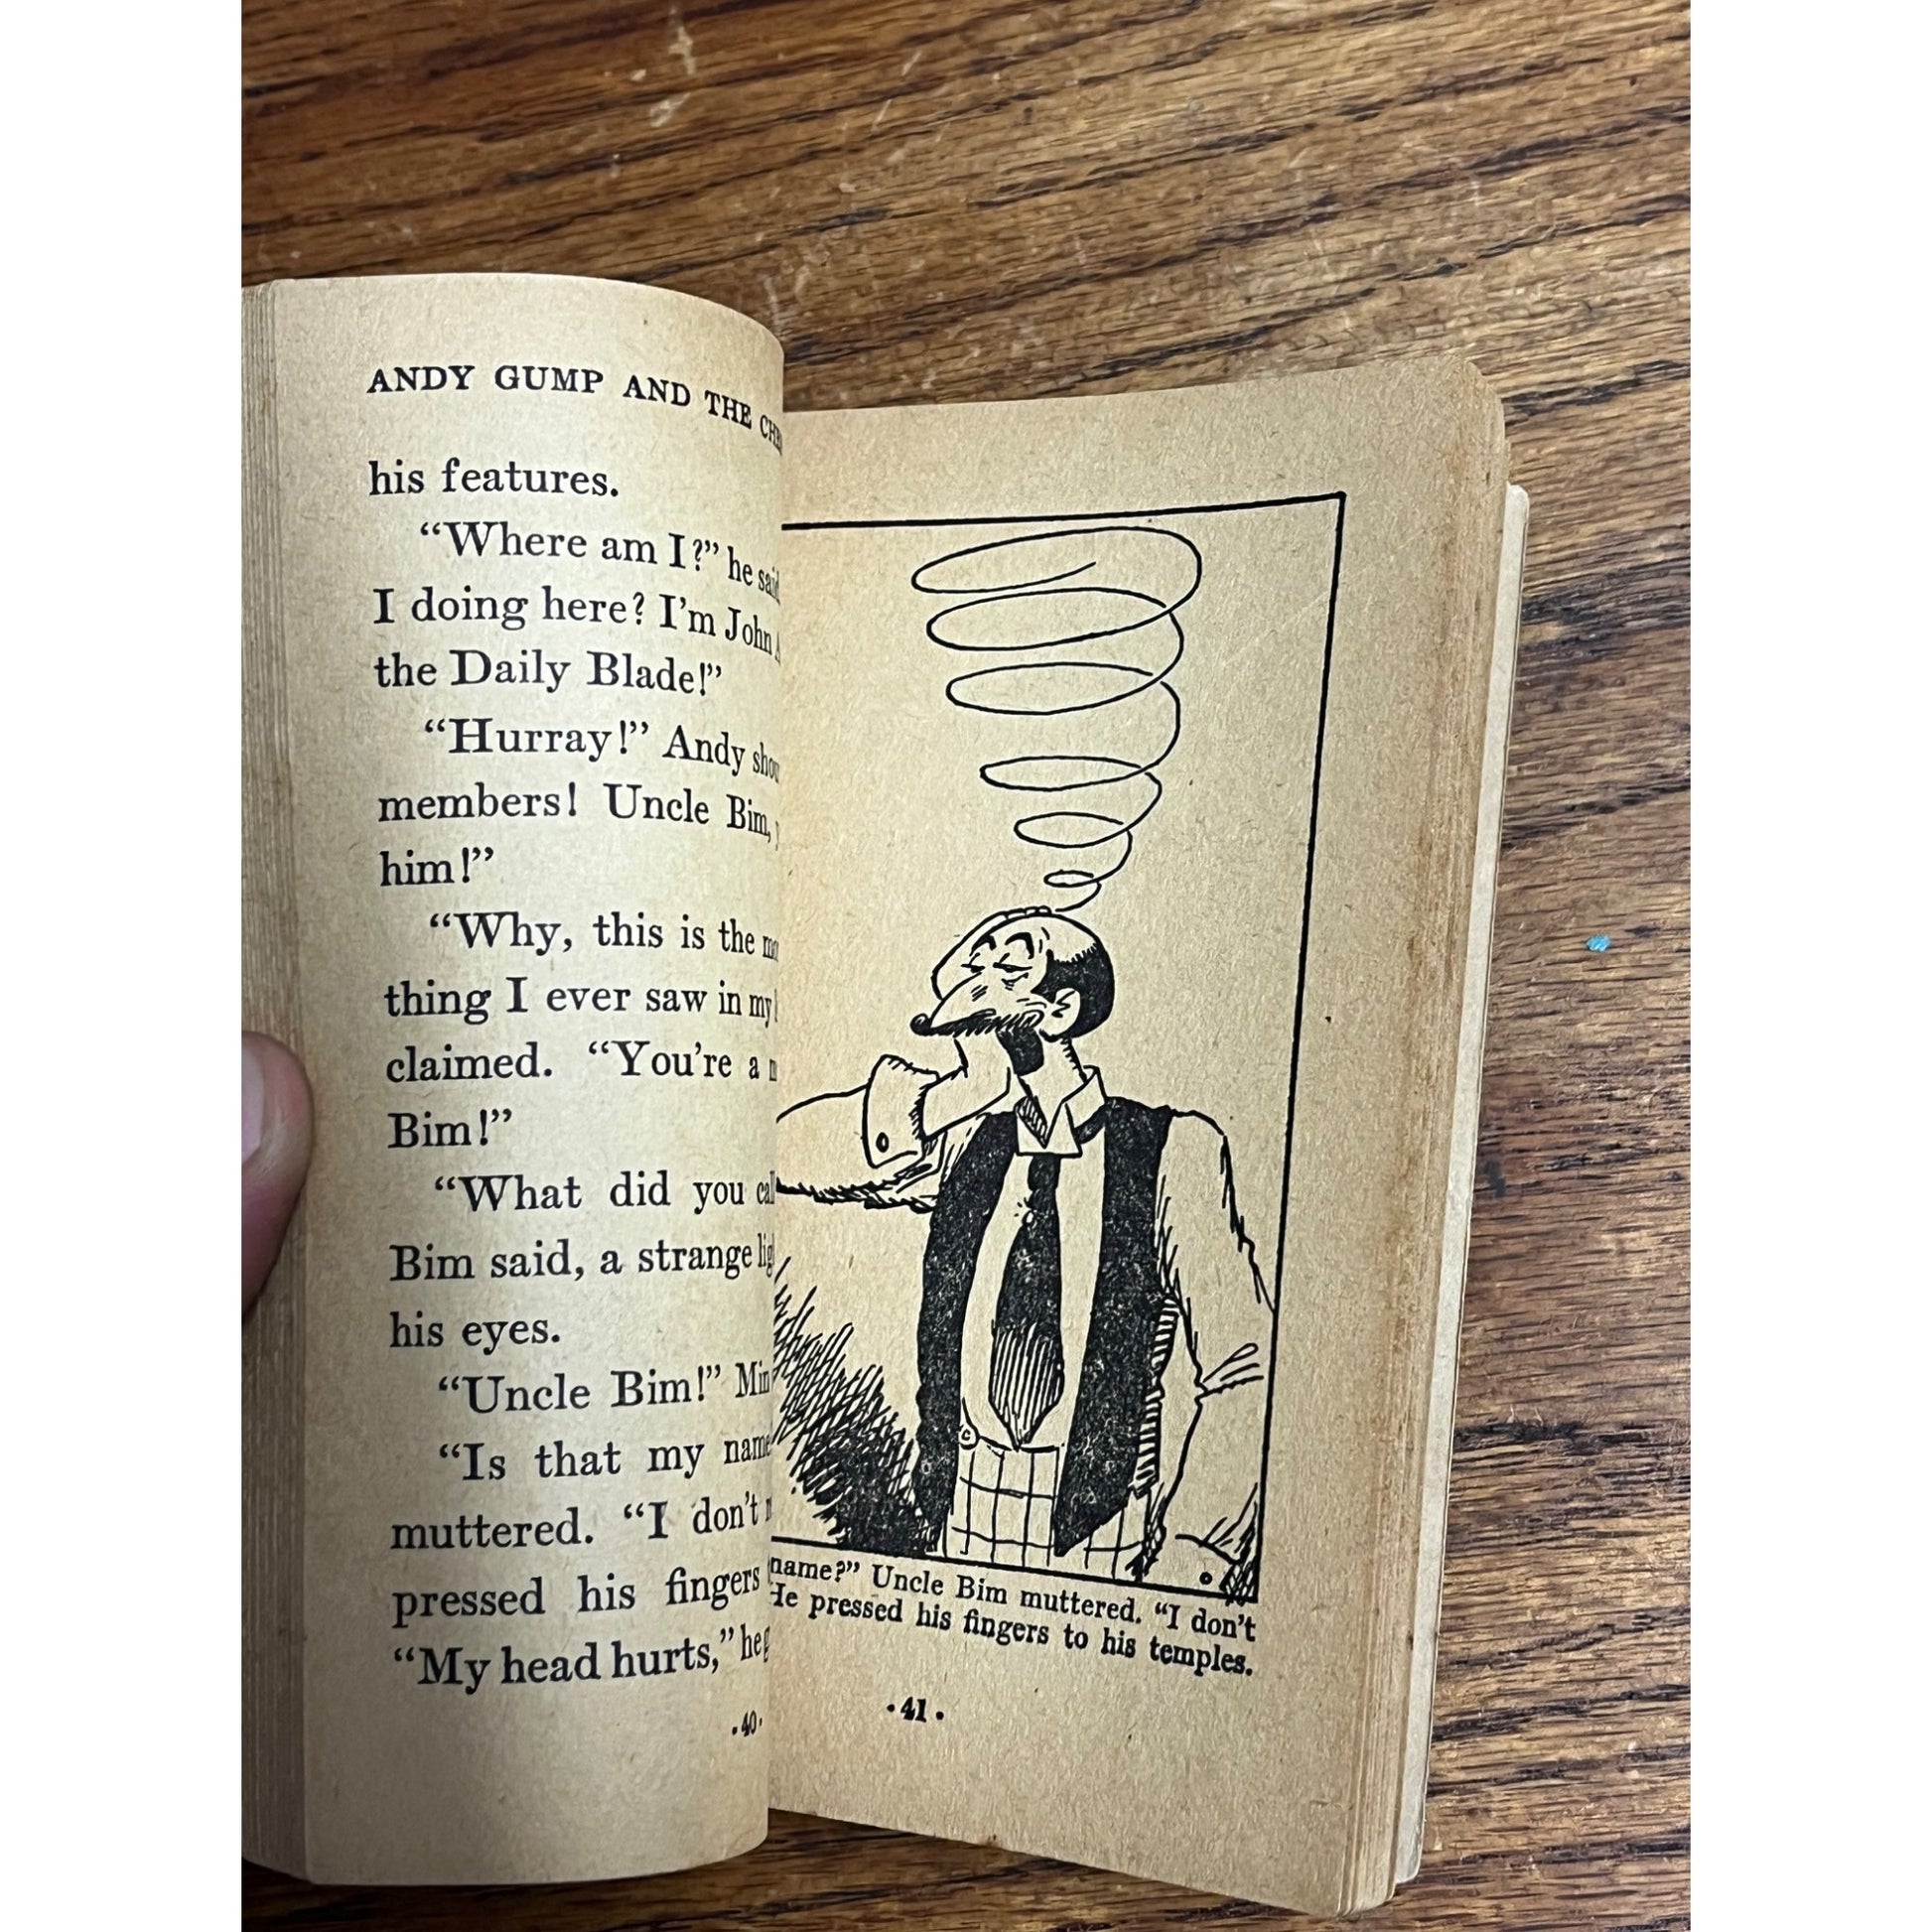 ANDY GUMP AND THE
his features.
“Where am I?” he
I doing here? I'm John
the Daily Blade!”
“Hurray!” Andy
members! Uncle Bim,
him!”
“Why, this is the
thing I ever saw in my
claimed. “You're a
Bim!”
“What did you
Bim said, a strange
his eyes.
“Uncle Bim!”
“Is that my
muttered. “I don't
pressed his fingers
“My head hurts,” he
·40·
name?” Uncle Bim muttered. “I don't
He pressed his fingers to his temples.
·41·